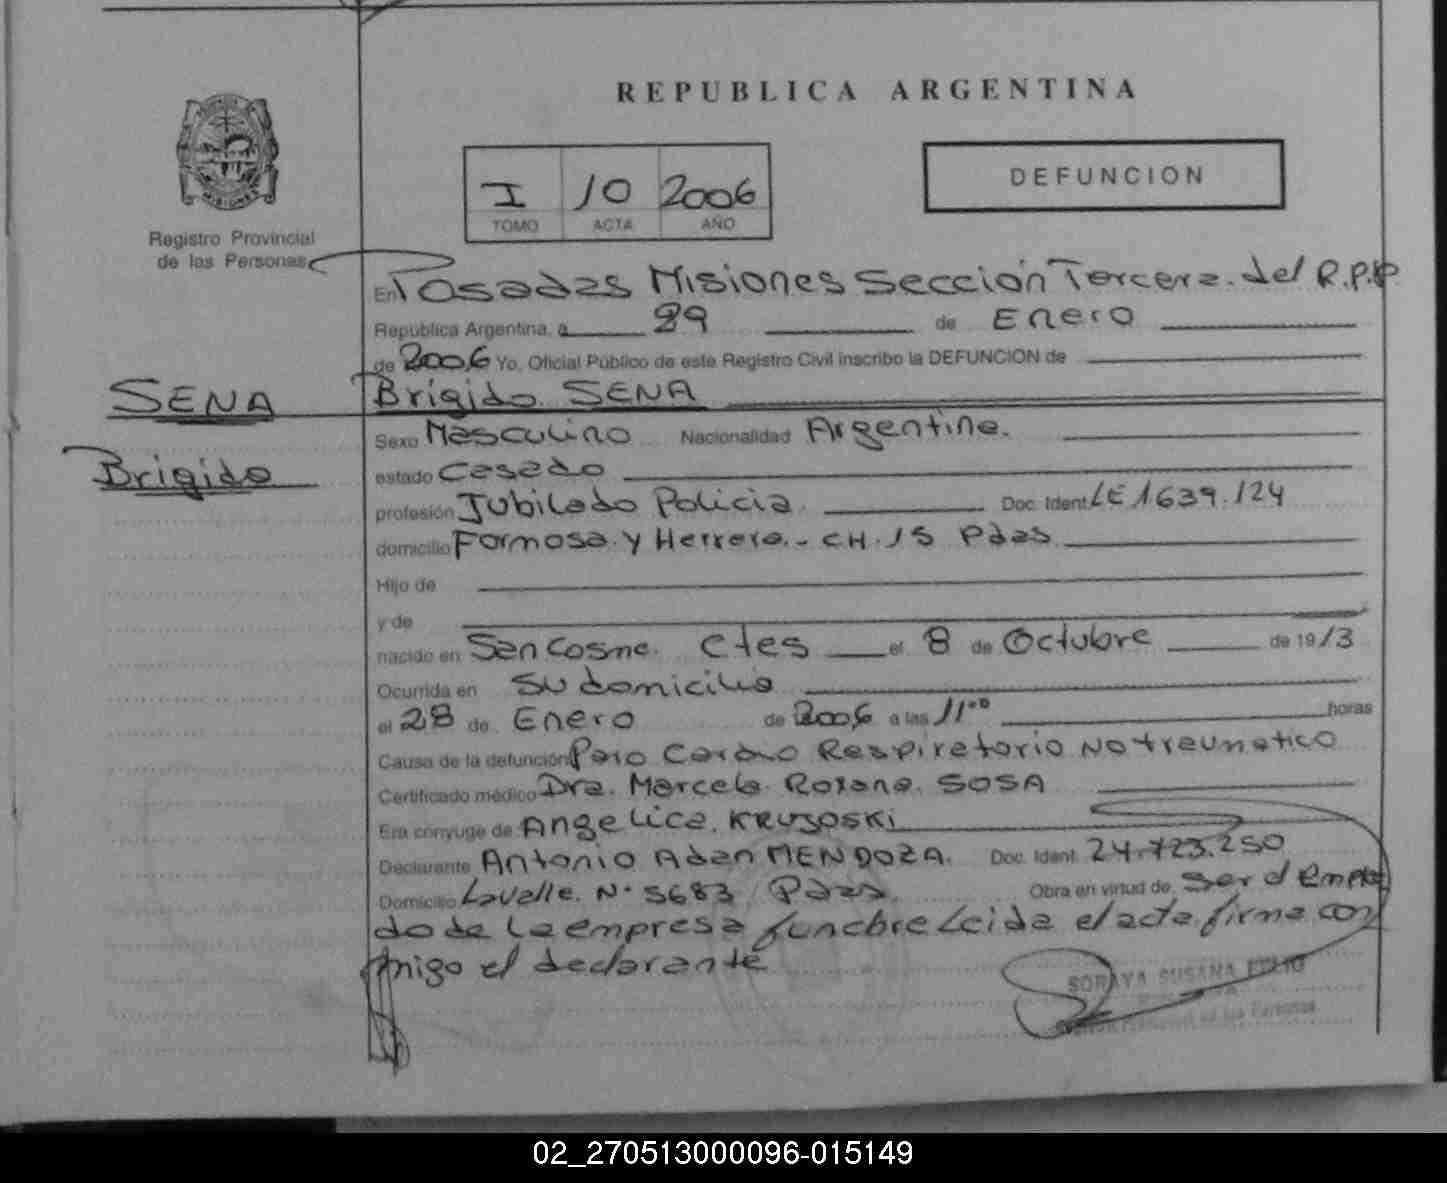 REPUBLICA ARGENTINA
I 10 2006
TOMO ACTA AÑO
DEFUNCION
MISIONES
Registro Provincial
de las Personas
En Posadas Misiones Sección Tercera. del R.P.P
República Argentina, a 29 de Enero
de 2006 Yo, Oficial Público de este Registro Civil inscribo la DEFUNCION de
SENA
Brigido
Brigido. SENA
Sexo Masculino Nacionalidad Argentina.
estado Casado
profesión Jubilado Policia. Doc. Ident. LE 1.639.124
domicilio Formosa y Herrera.- CH. 15 Pdas
Hijo de
y de
nacido en San Cosme. Ctes el 8 de Octubre de 1913
Ocurrida en Su domicilio
el 28 de Enero de 2006 a las 11.00 horas
Causa de la defunción Paro Cardio Respiratorio No traumatico
Certificado médico Dra. Marcela Roxana. SOSA
Era cónyuge de Angelica. KRUZOSKI
Declarante Antonio Adan MENDOZA. Doc. Ident. 24.723.250
Domicilio Lavalle. N° 5683 Pdas. Obra en virtud de Ser el emplea
do de la empresa funebre Leida el acta. firma con
migo el declarante
SORAYA SUSANA
02_270513000096-015149